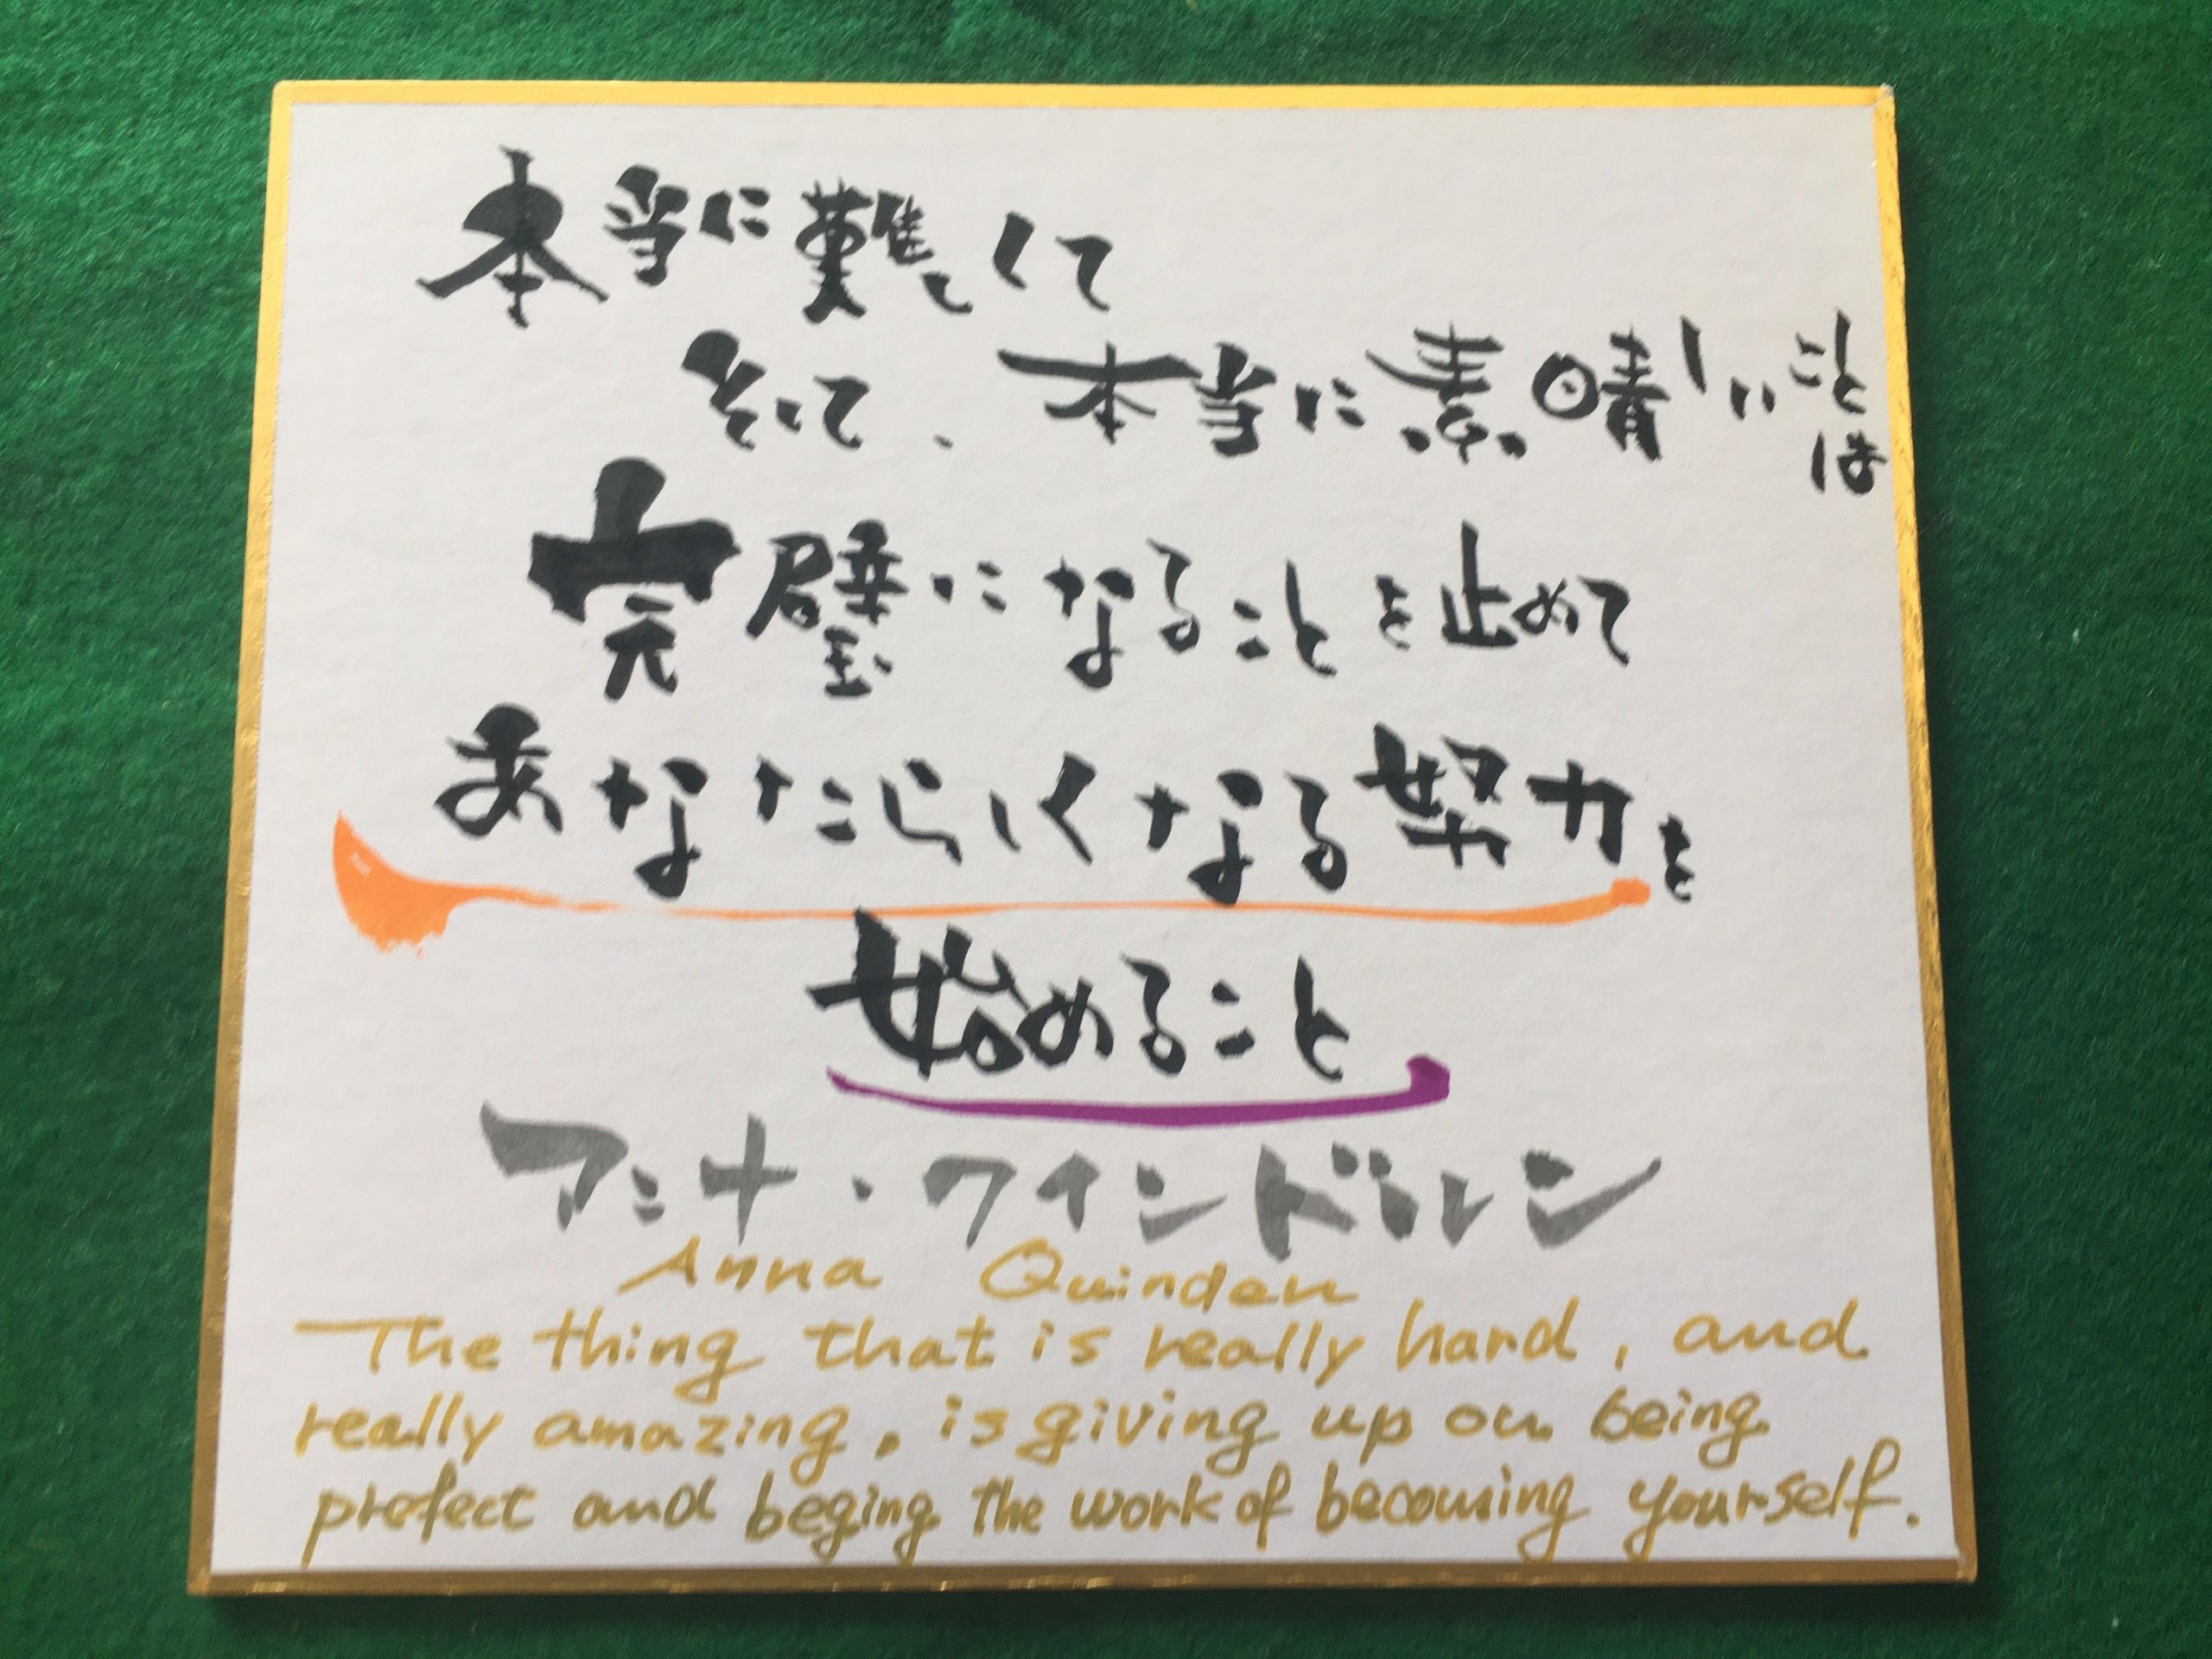 本当に難しくて
そして、本当に素晴しいことは
完璧になることを止めて
あなたらしくなる努力を
始めること
アンナ・クインドレン
Anna Quinden
The thing that is really hard, and
really amazing, is giving up on being
prefect and beging the work of becoming yourself.